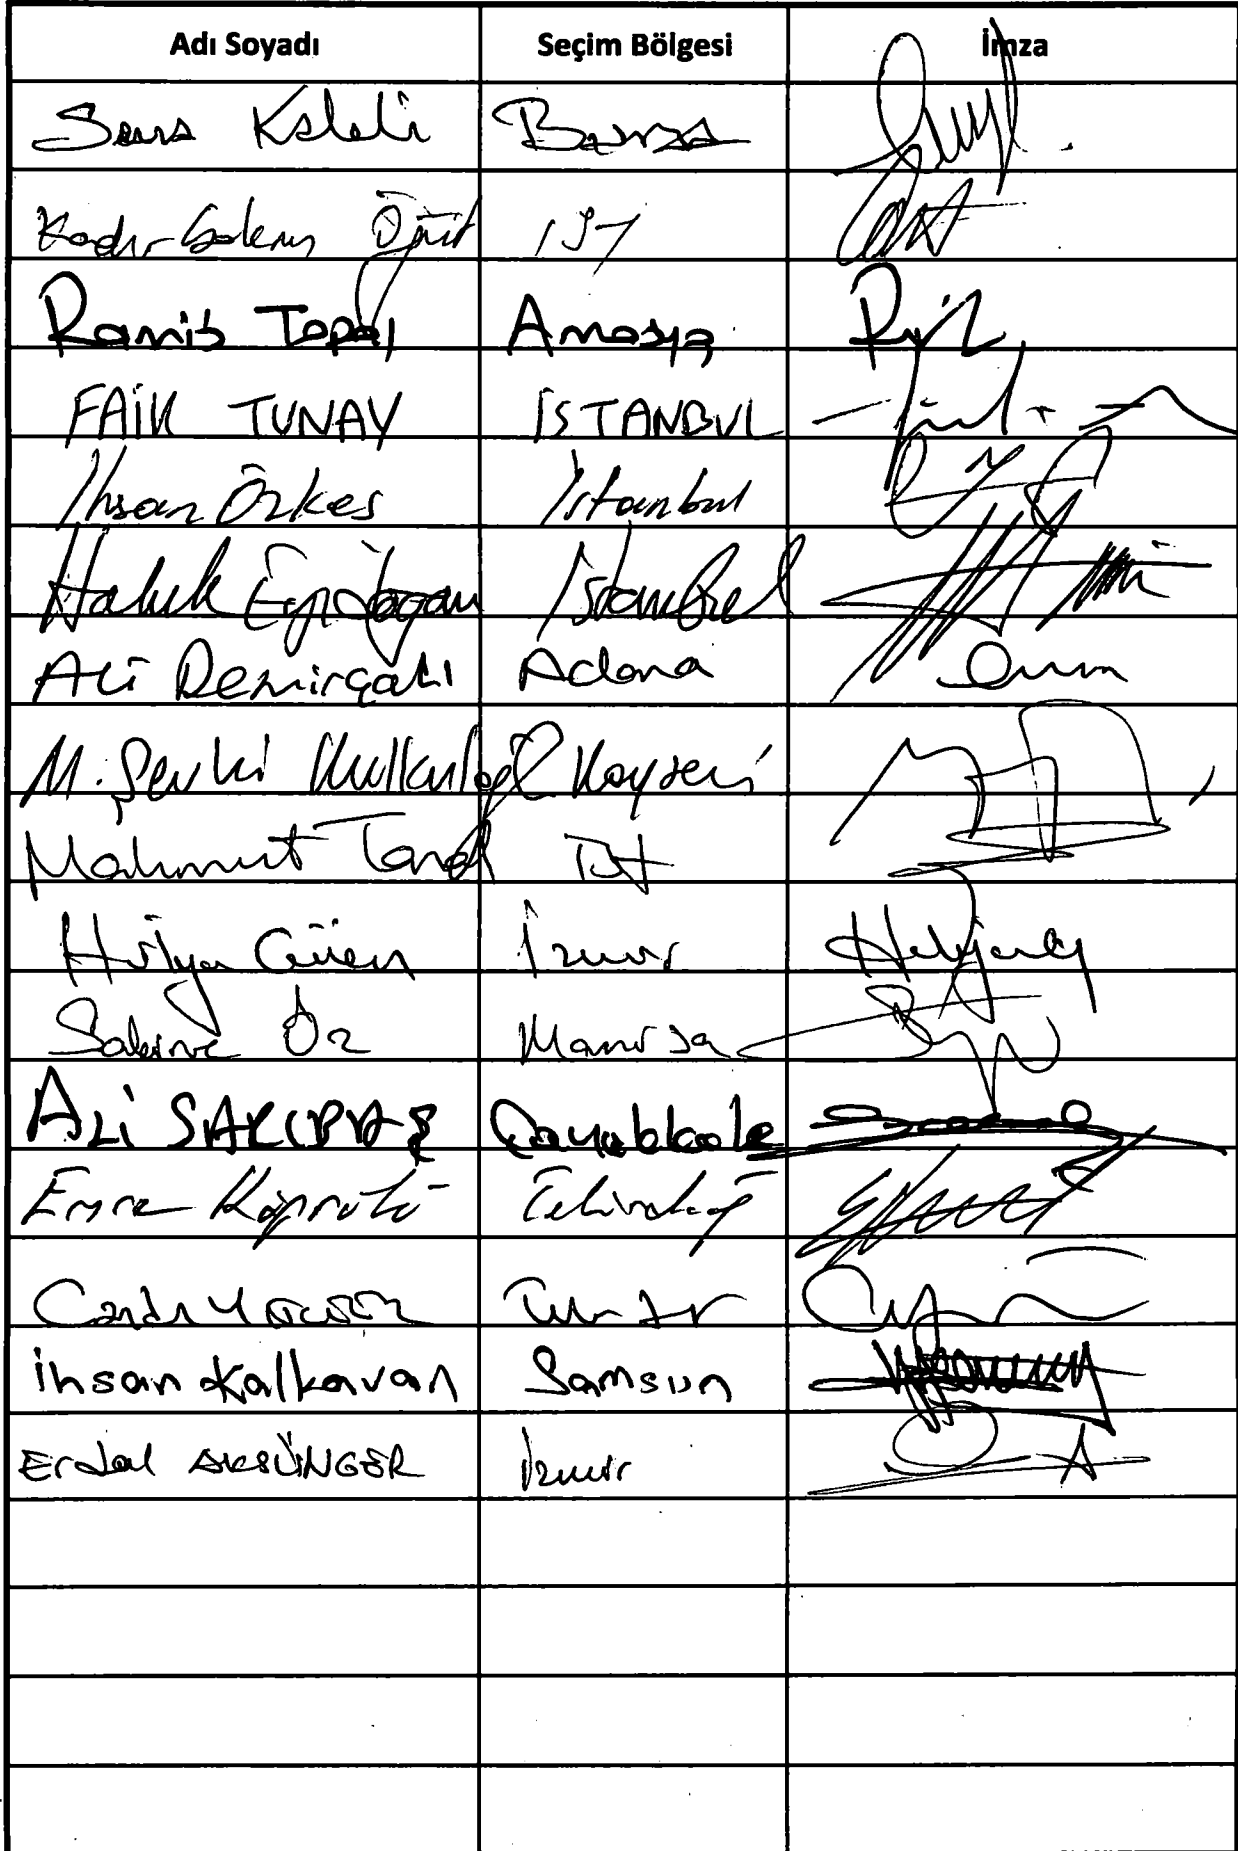 Adı Soyadı Seçim Bölgesi İmza
Sena Kaleli Bursa
Kadir Gökmen Öğüt İST
Ramis Topal Amasya
FAİK TUNAY İSTANBUL
İhsan Özkes İstanbul
Haluk Eyidoğan İstanbul
Ali Demirçalı Adana
M. Şevki Kulkuloğl Kayseri
Mahmut Tanal İst
Hülya Güven İzmir
Sakine Öz Manisa
ALİ SARIBAŞ Çanakkale
Emre Köprülü Tekirdağ
Candan Yüceer
İhsan Kalkavan Samsun
Erdal AKSÜNGER İzmir